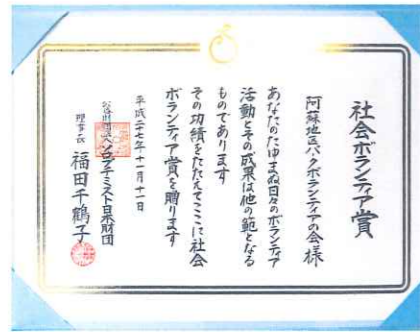 社会ボランティア賞
阿蘇地区パークボランティアの会様
あなたのたゆまぬ日々のボランティア
活動とその成果は他の範となる
ものであります
その功績をたたえてここに社会
ボランティア賞を贈ります
平成二十七年十一月十一日
公益財団法人ソロプチミスト日本財団
理事長 福田千鶴子